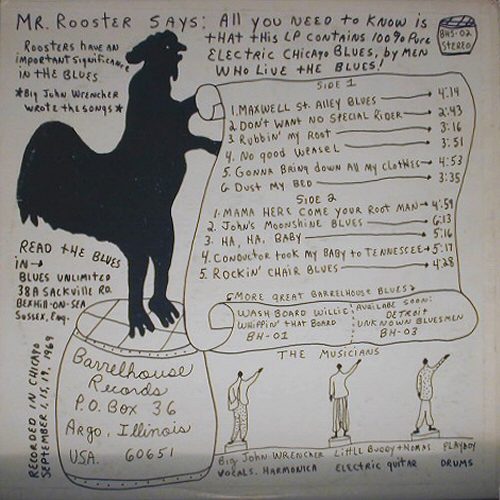 MR. ROOSTER SAYS: ALL YOU NEED TO KNOW IS
THAT THIS LP CONTAINS 100% PURE
ELECTRIC CHICAGO BLUES, BY MEN
WHO LIVE THE BLUES!
BHS-02
STEREO
ROOSTERS HAVE AN
IMPORTANT SIGNIFICANCE
IN THE BLUES
*BIG JOHN WRENCHER
WROTE THE SONGS*
SIDE 1
1. MAXWELL ST. ALLEY BLUES 4:14
2 DON'T WANT NO SPECIAL RIDER 2:43
3 RUBBIN' MY ROOT 3:16
4. NO GOOD WEASEL 3:51
5. GONNA BRING DOWN ALL MY CLOTHES 4:53
6 DUST MY BED 3:35
SIDE 2
1. MAMA HERE COME YOUR ROOT MAN 4:59
2. JOHN'S MOONSHINE BLUES 6:13
3. HA, HA, BABY 5:16
4. CONDUCTOR TOOK MY BABY TO TENNESSEE 5:17
5. ROCKIN' CHAIR BLUES 4:28
READ THE BLUES
IN
BLUES UNLIMITED
38A SACKVILLE RD.
BEXHILL-ON-SEA
SUSSEX, Eng.
MORE GREAT BARRELHOUSE BLUES
WASH BOARD WILLIE
WHIPPIN' THAT BOARD
BH-01
AVAILABLE SOON:
DETROIT
UNKNOWN BLUESMEN
BH-03
THE MUSICIANS
RECORDED IN CHICAGO
SEPTEMBER 1, 15, 19, 1969
Barrelhouse
Records
P.O. Box 36
Argo, Illinois
USA. 60651
BIG JOHN WRENCHER
VOCALS. HARMONICA
LITTLE BUDDY THOMAS
ELECTRIC GUITAR
PLAYBOY
DRUMS